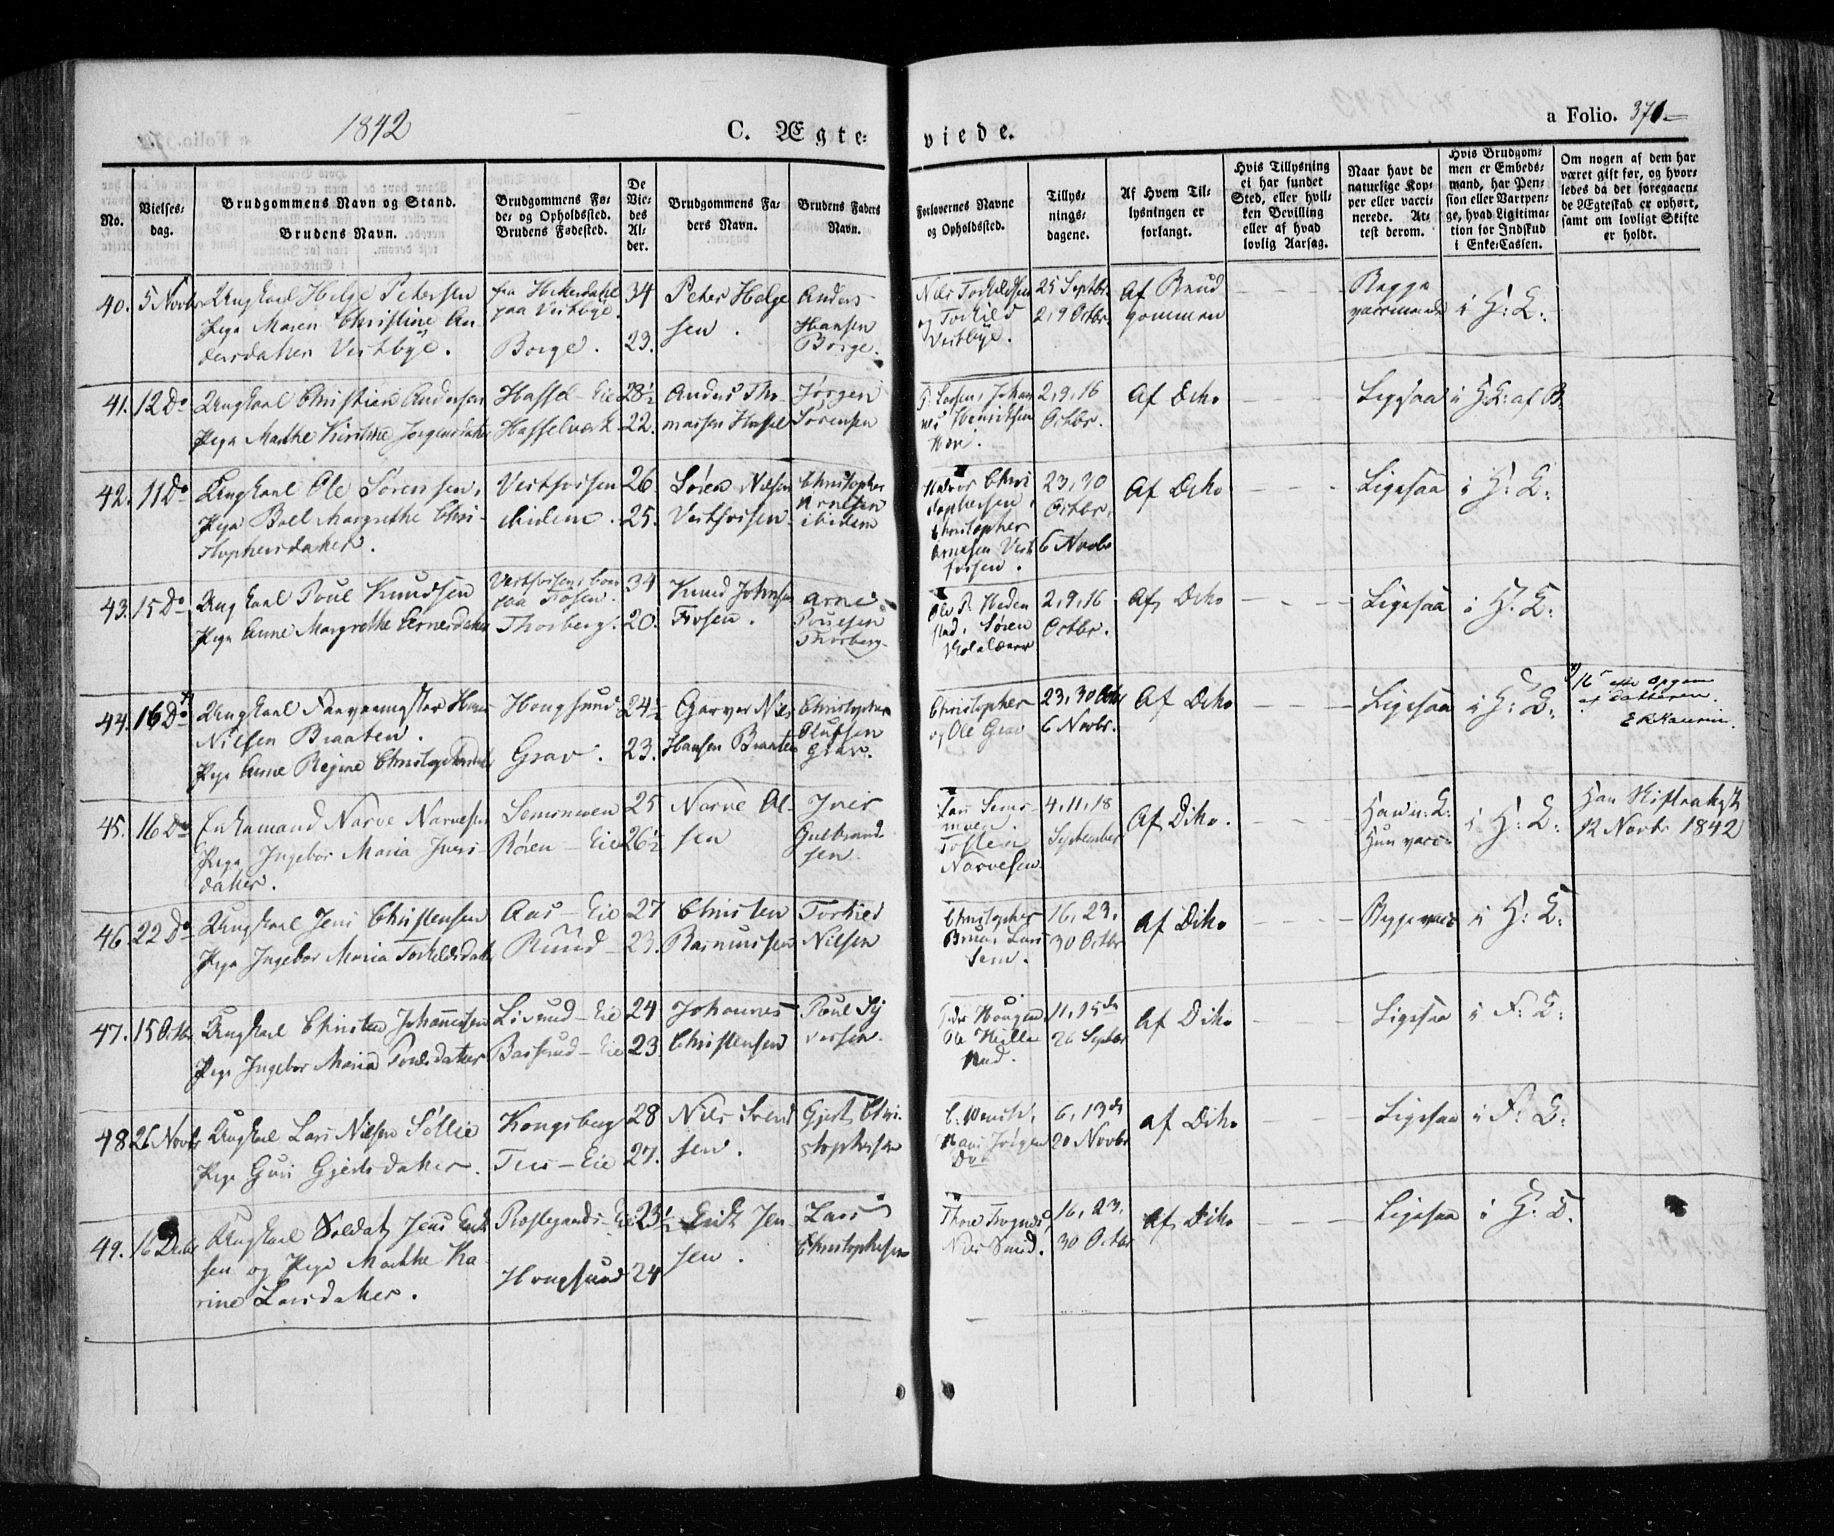 1842
C. Ægte-
viede.
a Folio. 371
No.
Vielses-
dag.
Brudgommens Navn og Stand.
Brudens Navn.
Brudgommens Fø-
de- og Opholdssted.
Brudens Fødested.
De
Vie-
des
Al-
der.
Brudgommens Fa-
ders Navn.
Brudens Faders
Navn.
Forlovernes Navne
og Opholdssted.
Tillys-
nings-
dagene.
Af Hvem Til-
lysningen er
forlangt.
Hvis Tillysning
ei har fundet
Sted, eller hvil-
ken Bevilling
eller af hvad
lovlig Aarsag.
Naar havt de
naturlige Kop-
per eller vacci-
nerede. At-
test derom.
Hvis Brudgom-
men er Embeds-
mand, har Pen-
sion eller Vartpen-
ge, hvad Legitima-
tion for Indskud
i Enke-Cassen.
Om nogen af dem har
været gift før, og hvor-
ledes da det foregaaen-
de Ægteskab er ophørt,
samt om lovligt Skifte
er holdt.
40. 5 Novbr
Ungkarl Helge Petersen
Pige Maren Christine An-
dersdatter Vestbye.
paa Vestbye.
Borge.
34
23.
Peter Helge
sen.
Anders
Hansen
Borge.
og Torkild
Vestbye.
25 Septbr.
2, 9 Octbr.
Af Brud
gommen
Begge
i H: K:
41. 12 Do
Ungkarl Christian Andersen
Pige Marthe Kirstine Jørgensdatter
Hassel - Eie
Hasselverk
28½
22.
Anders Tho-
massen Hassel
Jørgen
Sørensen
P. Larsen, Johan
nes Henriksen
2, 9, 16
Octbr.
Af Dito
Ligesaa
i H: K: af B.
42. 11 Do
Ungkarl Ole Sørensen,
Pige Boel Margrethe Chri-
stophersdatter.
Vestfossen
ibidem.
26.
25.
Søren Nilsen
Vestfossen
Christopher
Arnesen
ibidem
Halvor Chri
stophersen,
Christopher
Arnesen Vest
fossen.
23, 30
Octbr,
6 Novbr
Af Dito
Ligesaa
i H: K:
43. 15 Do
Ungkarl Poul Knudsen
Pige Anne Margrethe Arnesdatter
paa Fosen.
Thorberg.
34
20.
Knud Johnsen
Fosen.
Arne
Poulsen
Thorberg
Ole P. Heden
stad, Søren
2, 9, 16
Octbr.
Af Dito
Ligesaa
i H: K:
44. 16 Do
Ungkarl Farvermester Hans
Nilsen Braaten.
Pige Anne Regine Christophersdatter
Hougsund
Grav.
24½
23.
Garver Nils
Hansen Braaten
Christopher
Olufsen
Grav.
Christopher
og Ole Grav
23, 30 Octbr
6 Novbr.
Af Dito
Ligesaa
i H: K:
45. 16 Do
Enkemand Narve Narvesen
Pige Ingebor Maria Ivers-
datter.
Semsmoen
Røren - Eie
25
26½
Narve Ol-
sen
Iver
Gulbrand
sen.
Lars Sems
moen.
Tosten
Narvesen
4, 11, 18
September
Af Dito.
Han n. K:
Hun vacc:
i H: K:
Han Skifteattest
12 Novbr 1842
46. 22 Do
Ungkarl Jens Christensen
Pige Ingebor Maria Torkildsdatter
Aas - Eie
Ruud
27
23.
Christen
Rasmussen
Torkild
Nilsen
Christopher
Bruun Lars
Sem.
16, 23,
30 Octbr
Af Dito
Begge vacc
i H: K:
47. 15 Octbr
Ungkarl Christen Johannesen
Pige Ingebor Maria Poulsdatter
Livrud - Eie
Basrud - Eie
24
23
Johannes
Christensen
Poul Sy
versen.
Peder Hougen
11, 15de
26 Septbr
Af Dito
Ligesaa
i F: K:
48 26 Novbr
Ungkarl Lars Nilsen Sollie
Pige Guri Gjertsdatter.
Kongsberg
Teis - Eie
28
27.
Nils Svend
sen.
Gjert Chri-
stophersen
Hans Jørgen
Do
6, 13de
20 Novbr
Af Dito
Ligesaa
i F: K:
49. 16 Decbr
Ungkarl Soldat Jens Erik
sen og Pige Marthe Ka-
rine Larsdatter.
Hougsund
23½
24
Erik Jen-
sen.
Lars
Christophersen
16, 23,
30 Octbr
Af Dito
Ligesaa
i H: K.